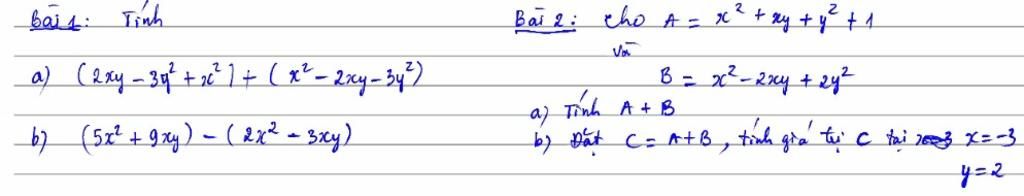 Bài 1: Tính
a) (2xy - 3y² + x²) + (x² - 2xy - 3y²)
b) (5x² + 9xy) - (2x² - 3xy)
Bài 2: Cho A = x² + xy + y² + 1
và
B = x² - 2xy + 2y²
a) Tính A + B
b) Đặt C = A + B, tính giá trị C tại x = -3
y = 2